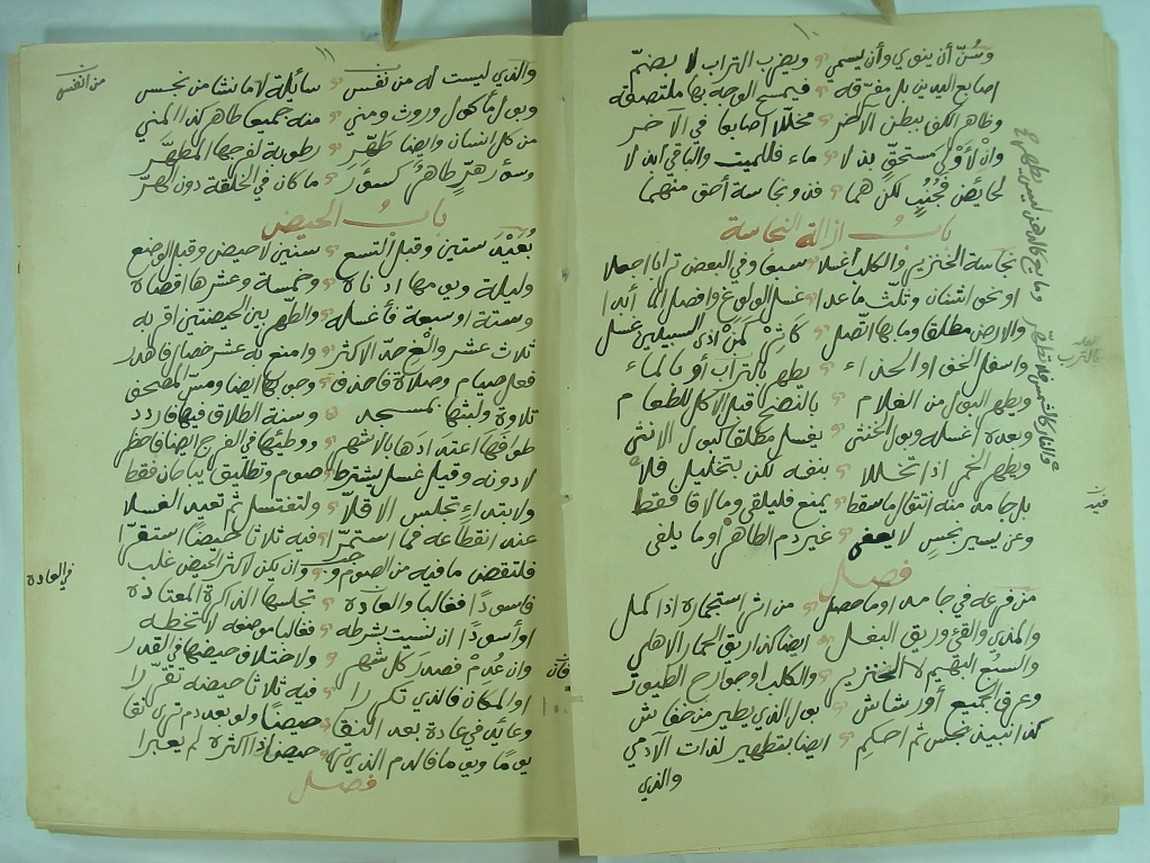 ١٠
وسُنّ أن ينوي وأن يسمي ويضرب التراب لا بضمّ
اصابع اليدين بل مفرقه فيمسح الوجه بها ملتصقه
وظاهر الكف ببطن الآخر مخللا اصابعا في الآخر
وان لأولى مستحق بذلا ماء فللميت والباقي ابذلا
لحائض فجنب لكن هما فذو نجاسة أحق منهما
باب ازالة النجاسة
نجاسة الخنزير والكلب اغسلا سبعا وفي البعض ترابا اجعلا
او نحو اشنان وثلث ما عدا غسل الولوغ وافصل الما أبدا
والارض مطلقا وما بها اتصل كاثر من اذى السبيلين غسل
واسفل الخف او الحذاء يطهر بالتراب أو بالماء
ويطهر البول من الغلام بالنضح قبل الاكل للطعام
وبعده اغسله وبول الخنثى يغسل مطلقا كبول الانثى
ويطهر الخمر اذا تخللا بنفسه لكن بتخليل فلا
بل جامد منه انتقال ما سقط يمنع فليلقى وما لاقا فقط
وعن يسير نجس لا يعفى غير دم الطاهر او ما يلفى
فصل
من فرعه في جامد او ما حصل من اثر استجماره اذا كمل
والمذي والقئ وريق البغل ايضا كذا ريق الحمار الاهلي
والسبع البهيم لا الخنزير والكلب او جوارح الطيور
وعرق الجميع أو رشاش بول الذي يطير من خفاش
كذا نبيذ نجس ثم احكم ايضا بتطهير لذات الآدمي
والذي
وما يع كالدهن ليس يطهر
والنار كالشمس فلا تطهر
١١
والذي ليست له من نفس سائلة لا ما نشا من نجس
من النفس
وبول مأكول وروث ومني منه جميعا طاهر كذا المني
من كل انسان وايضا طهر رطوبة لفرجها المطهر
وسؤر هر طاهر كسؤر ما كان في الخلقة دون الهر
باب الحيض
بعيد ستين وقبل التسع سنين لا حيض وقبل الوضع
وليلة ويومها ادناه وخمسة وعشرها اقصاه
وستة او سبعة فأغلبه والطهر بين الحيضتين اقربه
ثلاث عشر والغ حد الاكثر وامنع به عشر خصال فاهدر
فعل صيام وصلاة فاحذف وجوبها ايضا ومس المصحف
تلاوة ولبثها بمسجد وسنة الطلاق فيها فاردد
طوافها اعتدادها بالاشهر ووطئها في الفرج ايضا فاحظر
لا دونه وقبل غسل يشترط صوم وتطليق يباحان فقط
ولابتداء تجلس الاقلا ولتغتسل ثم تعيد الغسلا
عند انقطاعه فما استمرا فيه ثلاثا حيضا استقرا
فلتقض ما فيه من الصوم وجب وان يكن لاكثر الحيض غلب
فاسودا فغالبا والعادة تجلسها الذاكرة المعتادة
في العادة
او أسودا ان نسيت بشرطه فغالبا موضعه لا تخطه
وان عدم فصدر كل شهر ولاختلاف حيضها في القدر
او المكان فالذي تكررا فيه ثلاثا حيضه تقررا
وعائد في عادة بعد النقا حيضا ولو بعد دم ترى نقا
يوما ويوما فالدم الذي ترى حيض اذا اكثره لم يعبرا
فصل